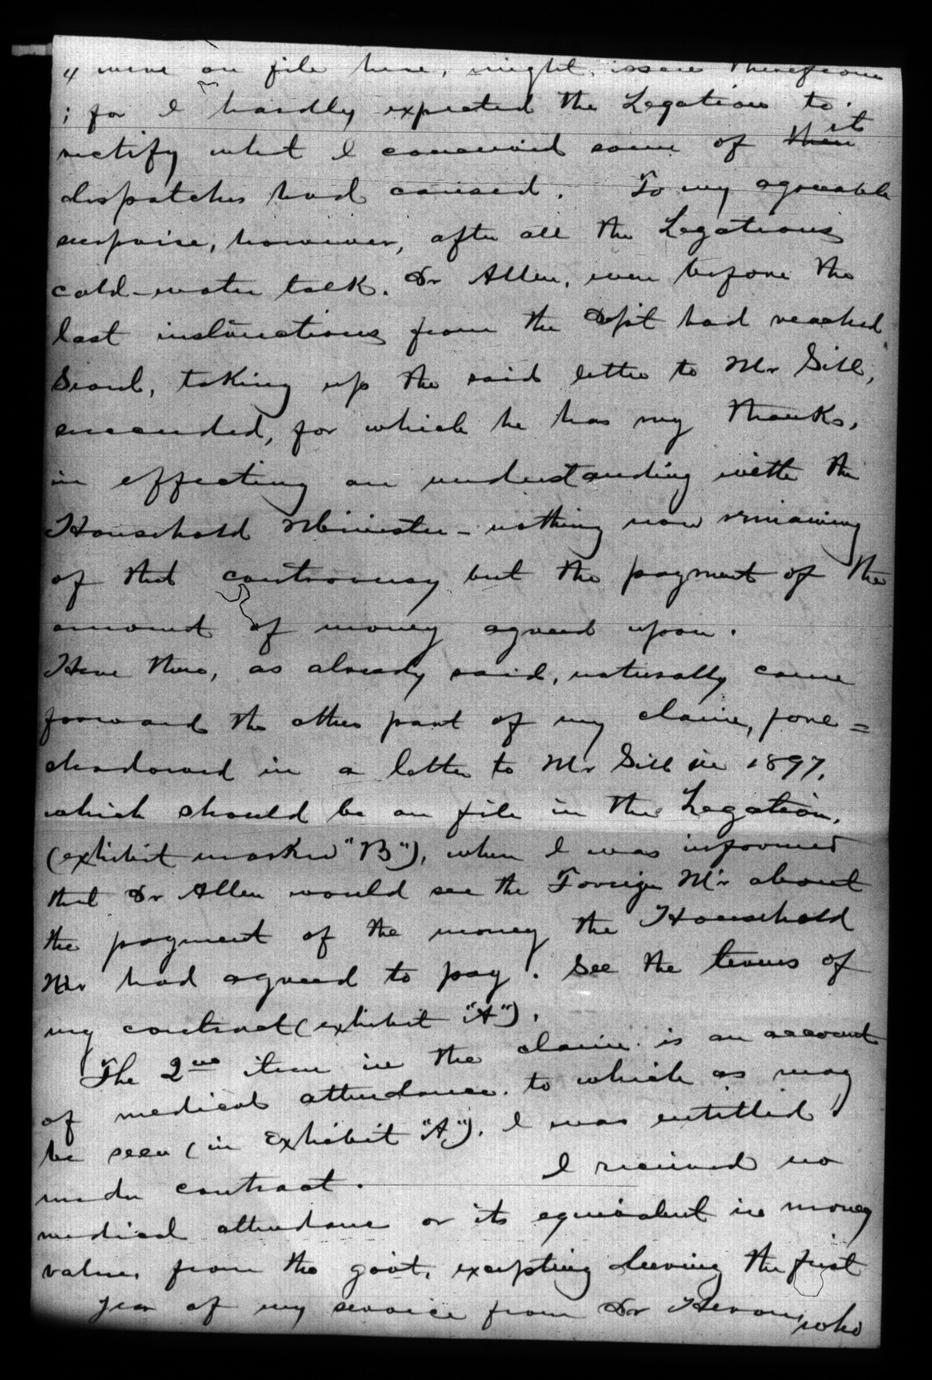 y were on file here, might, issue therefrom
; for I hardly expected the Legation to
rectify what I conceived some of their it
dispatches had caused. To my agreeable
surprise, however, after all the Legations
cold-water talk. Dr Allen, even before the
last instructions from the Dep't had reached
Seoul, taking up the said letter to Mr Sill,
succeeded, for which he has my thanks,
in effecting an understanding with the
Household Minister - nothing now remaining
of that controversy but the payment of the
amount of money agreed upon.
Here then, as already said, naturally came
forward the other part of my claim, fore=
shadowed in a letter to Mr Sill in 1897,
which should be on file in the Legation,
(exhibit marked "B"), when I was informed
that Dr Allen would see the Foreign M'r about
the payment of the money the Household
M'r had agreed to pay. See the terms of
my contract (exhibit "A").
The 2nd item in the claim is an account
of medical attendance, to which as may
be seen (in Exhibit "A"), I was entitled
under contract. I received no
medical attendance or its equivalent in money
value, from the gov't, excepting during the first
year of my service from Dr Heron, who